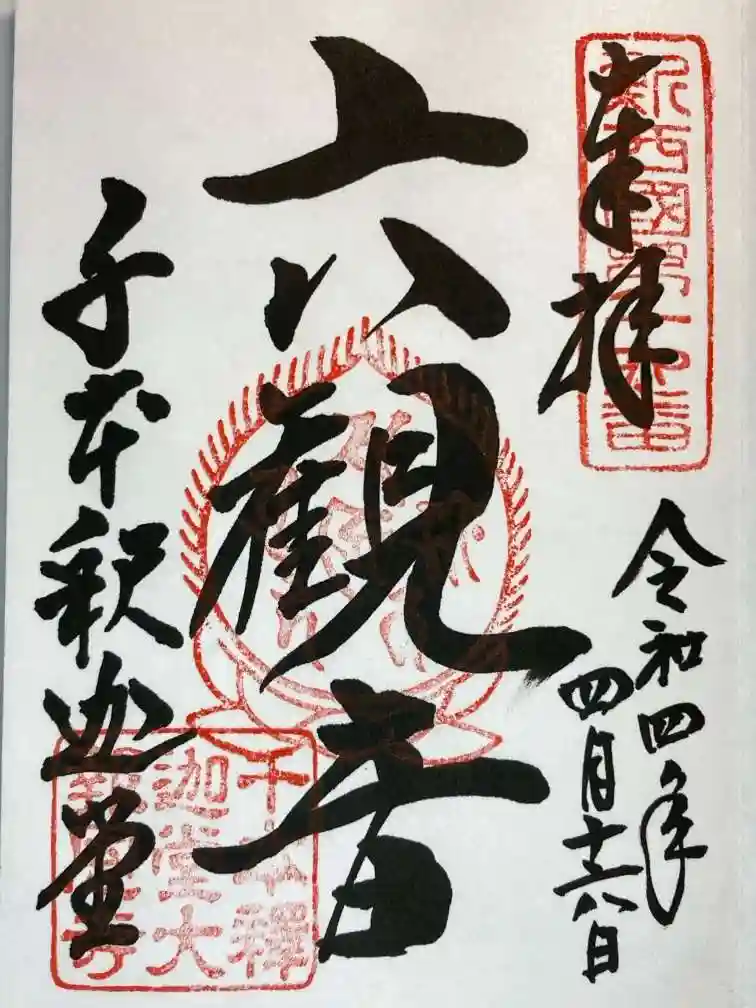 奉拝
新西國第十六番
令和四年
四月十六日
六観音
千本釈迦堂
千本釋
迦堂大
報恩寺